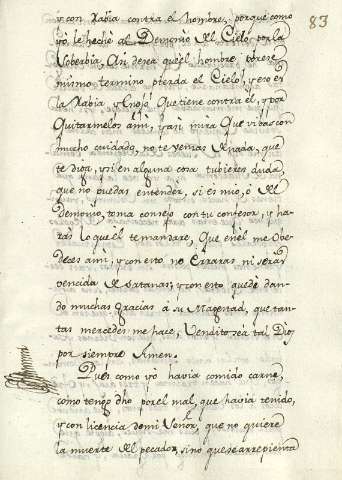 83
y con Rabia contra el hombre, porque como
yo, le heché al Demonio del Cielo, por la
soberbia, Assi desea quel hombre por ese
mismo termino pierda el Cielo, y eso es
la Rabia y Enojo Que tiene contra el, y por
Quitarmelos à mi, y asi mira Que vibas con
mucho cuidado, no te vemas de nada, que
te diga, y si en alguna cosa tubieres duda,
que no puedas entender, si es mio, ò del
Demonio, toma consejo con tu confesor, y ha
ras lo que èl te mandare, Que en èl me Obe
deces à mi, y con esto no Erraras ni seras
vencida de satanas, y con esto quedè dan
do muchas gracias à su Magestad, que tan
tas mercedes me hace, Vendito sea tal Dios
por siempre Amen.
Pues como yo havia comido carne,
como tengo dho por el mal, que havia tenido,
y con licencia de mi Señor, que no quiere
la muerte del pecador, sino que se arrepienta